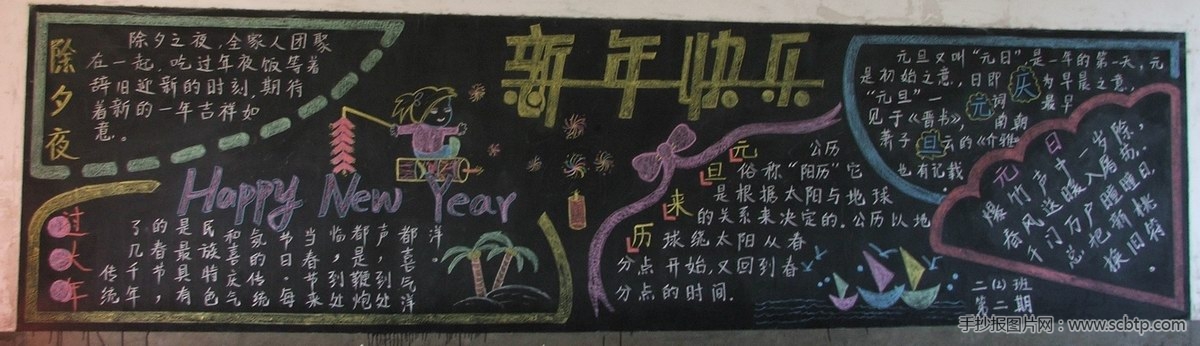 除夕夜
除夕之夜,全家人团聚
在一起.吃过年夜饭等着
辞旧迎新的时刻.期待
着新的一年吉祥如
意。
新年快乐
Happy New Year
过大年
传统
了几千年,
的春节,
是最具有
民族特色
和喜庆气
氛的传统
节日.每
当春节来
临,到处
都是鞭炮
声,到处
都喜气洋
洋。
元旦来历
公历
俗称“阳历”它
是根据太阳与地球
的关系来决定的.公历以地
球绕太阳从春
分点开始,又回到春
分点的时间.
元旦又叫“元日”,是一年的第一天,元
是初始之意.,日即为早晨之意.
“元旦”一词最早
见于《晋书》,南朝
萧子云的《介雅》
也有记载.
庆
元
旦
元日
爆竹声中一岁除,
春风送暖入屠苏.
千门万户瞳瞳日
总把新桃
换旧符.
二(2)班
第二期
手抄报图片网：www.scbtp.com